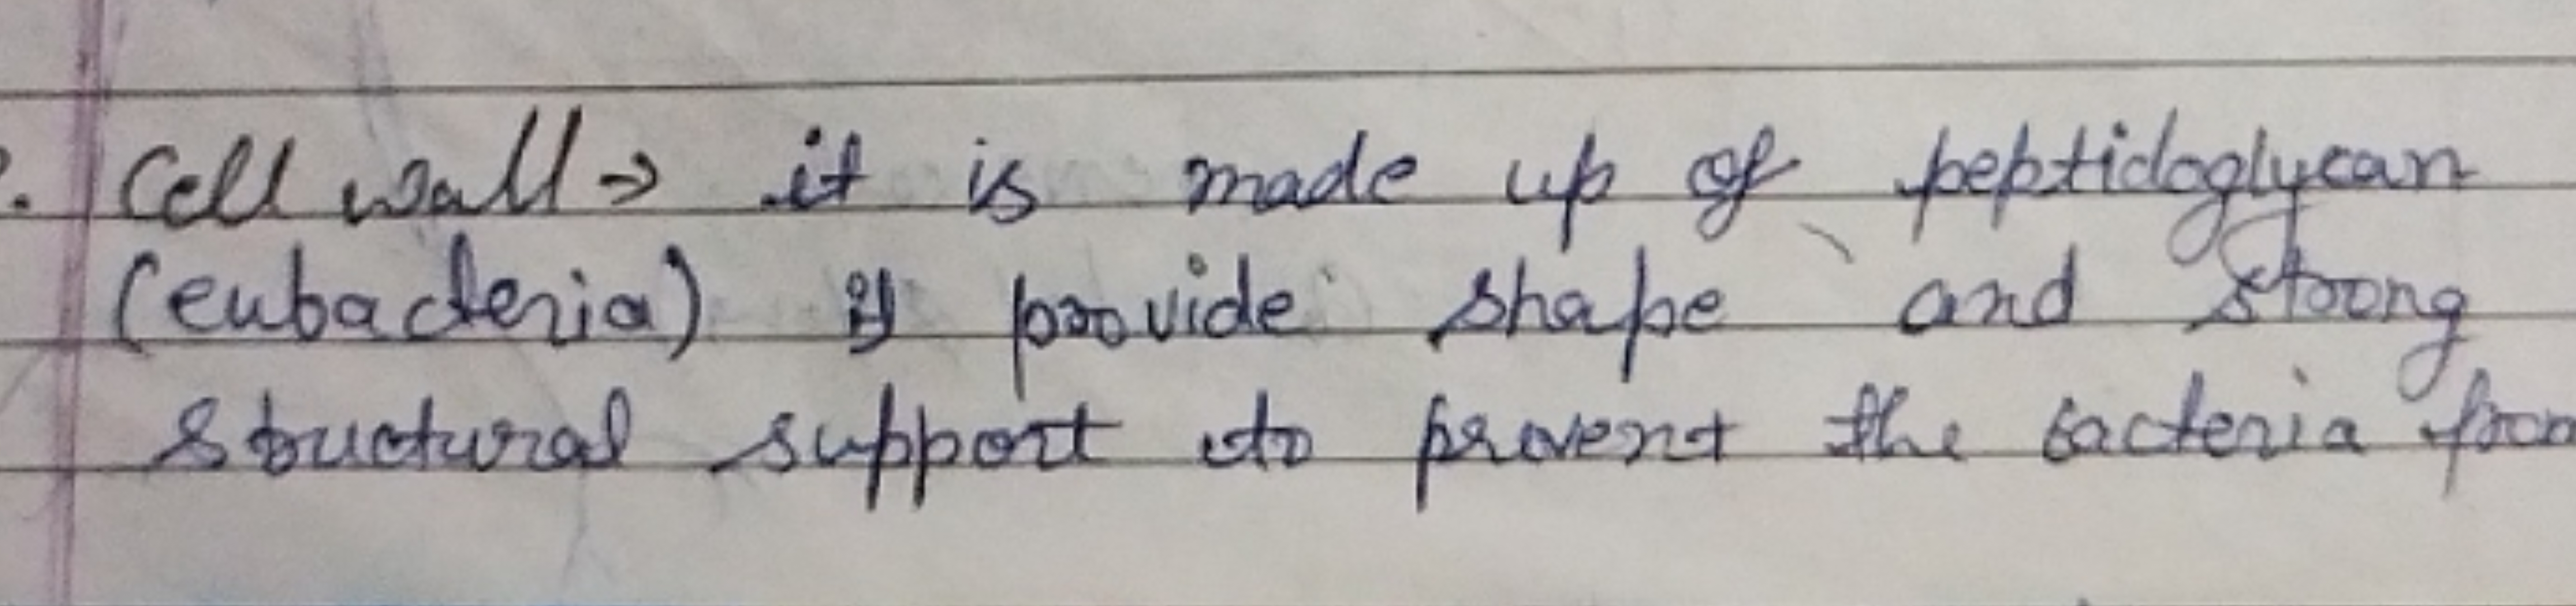 . Cell wall ⇒ it is made up of peptidoglycan
(eubacteria) it provide shape and strong
structural support to prevent the bacteria from